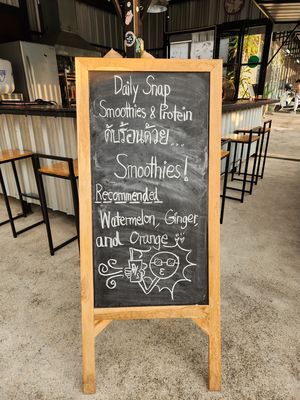 Daily Snap
Smoothies & Protein
ดับร้อนด้วย...
Smoothies!
Recommended
Watermelon, Ginger,
and Orange